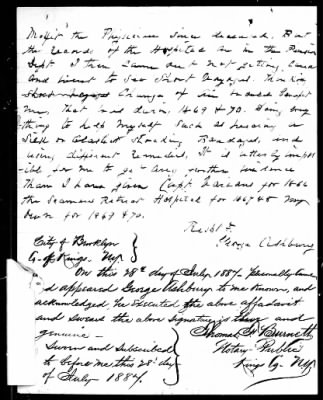 the Physicians since deceased. But
the records of the Hospital are in the Pension
Dept I then came out not getting
and went to Sea Short Voyages. Thinking
change of air would benefit
me, that was during 1869 & 70. Doing every
thing to help myself such as wearing a
Silk or Elastic Stocking Bandages, and
using different Remedies, It is utterly impos
ible for me to get any further evidence
than I have given Capt. for 1866
the Seamens Retreat Hospital for 1867 & 8 My
own for 1869 & 70.
Respt Y.
George Ashbury
City of Brooklyn
Co. of Kings. NY.
On this 28th day of July, 1887. Personally came
and appeared George Ashbury to me known, and
acknowledged he executed the above affidavit
and swears the above signature is and
genuine -
Sworn and Subscribed
to before me this 28th day
of July 1887.
Thomas H. Burnett
Notary Public
Kings Co. NY.